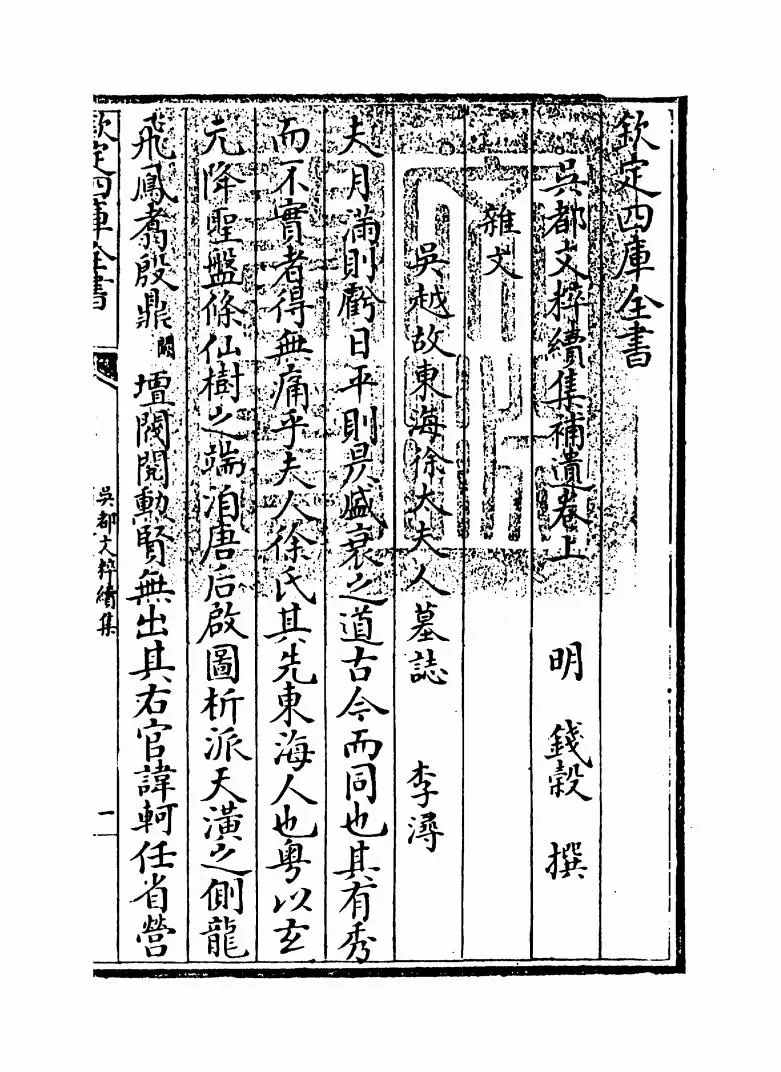 欽定四庫全書
吳都文粹續集補遺卷上 明 錢榖 撰
雜文
吳越故東海徐大夫人墓誌 李潯
夫月滿則虧日平則昃盛衰之道古今而同也其有秀
而不實者得無痛乎夫人徐氏其先東海人也粤以玄
元降聖盤條仙樹之端洎唐后啟圖析派天潢之側龍
飛鳳翥殷鼎闕壇閥閱勳賢無出其右官諱軻任省營
欽定四庫全書
吳都文粹續集
一